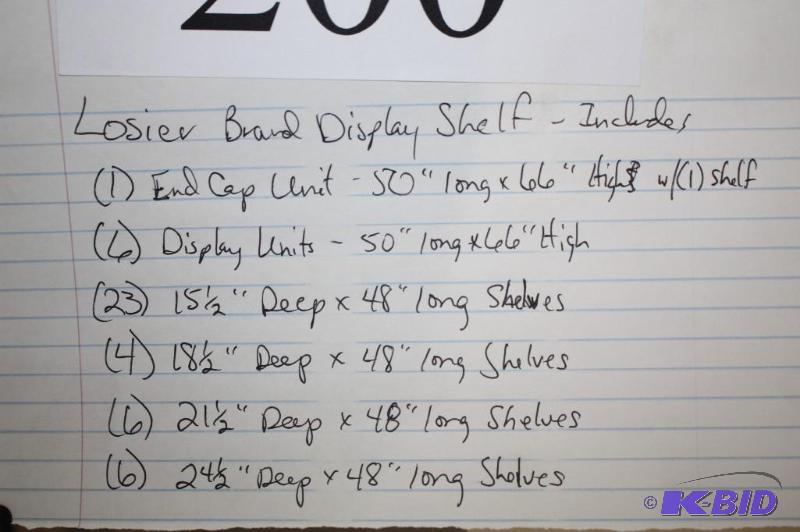 200
Losier Brand Display Shelf - Includes
(1) End Cap Unit - 50" long x 66" High w/(1) shelf
(6) Display Units - 50" long x 66" High
(23) 15 1/2" Deep x 48" long Shelves
(4) 18 1/2" Deep x 48" long Shelves
(6) 21 1/2" Deep x 48" long Shelves
(6) 24 1/2" Deep x 48" long Shelves
© K-BID